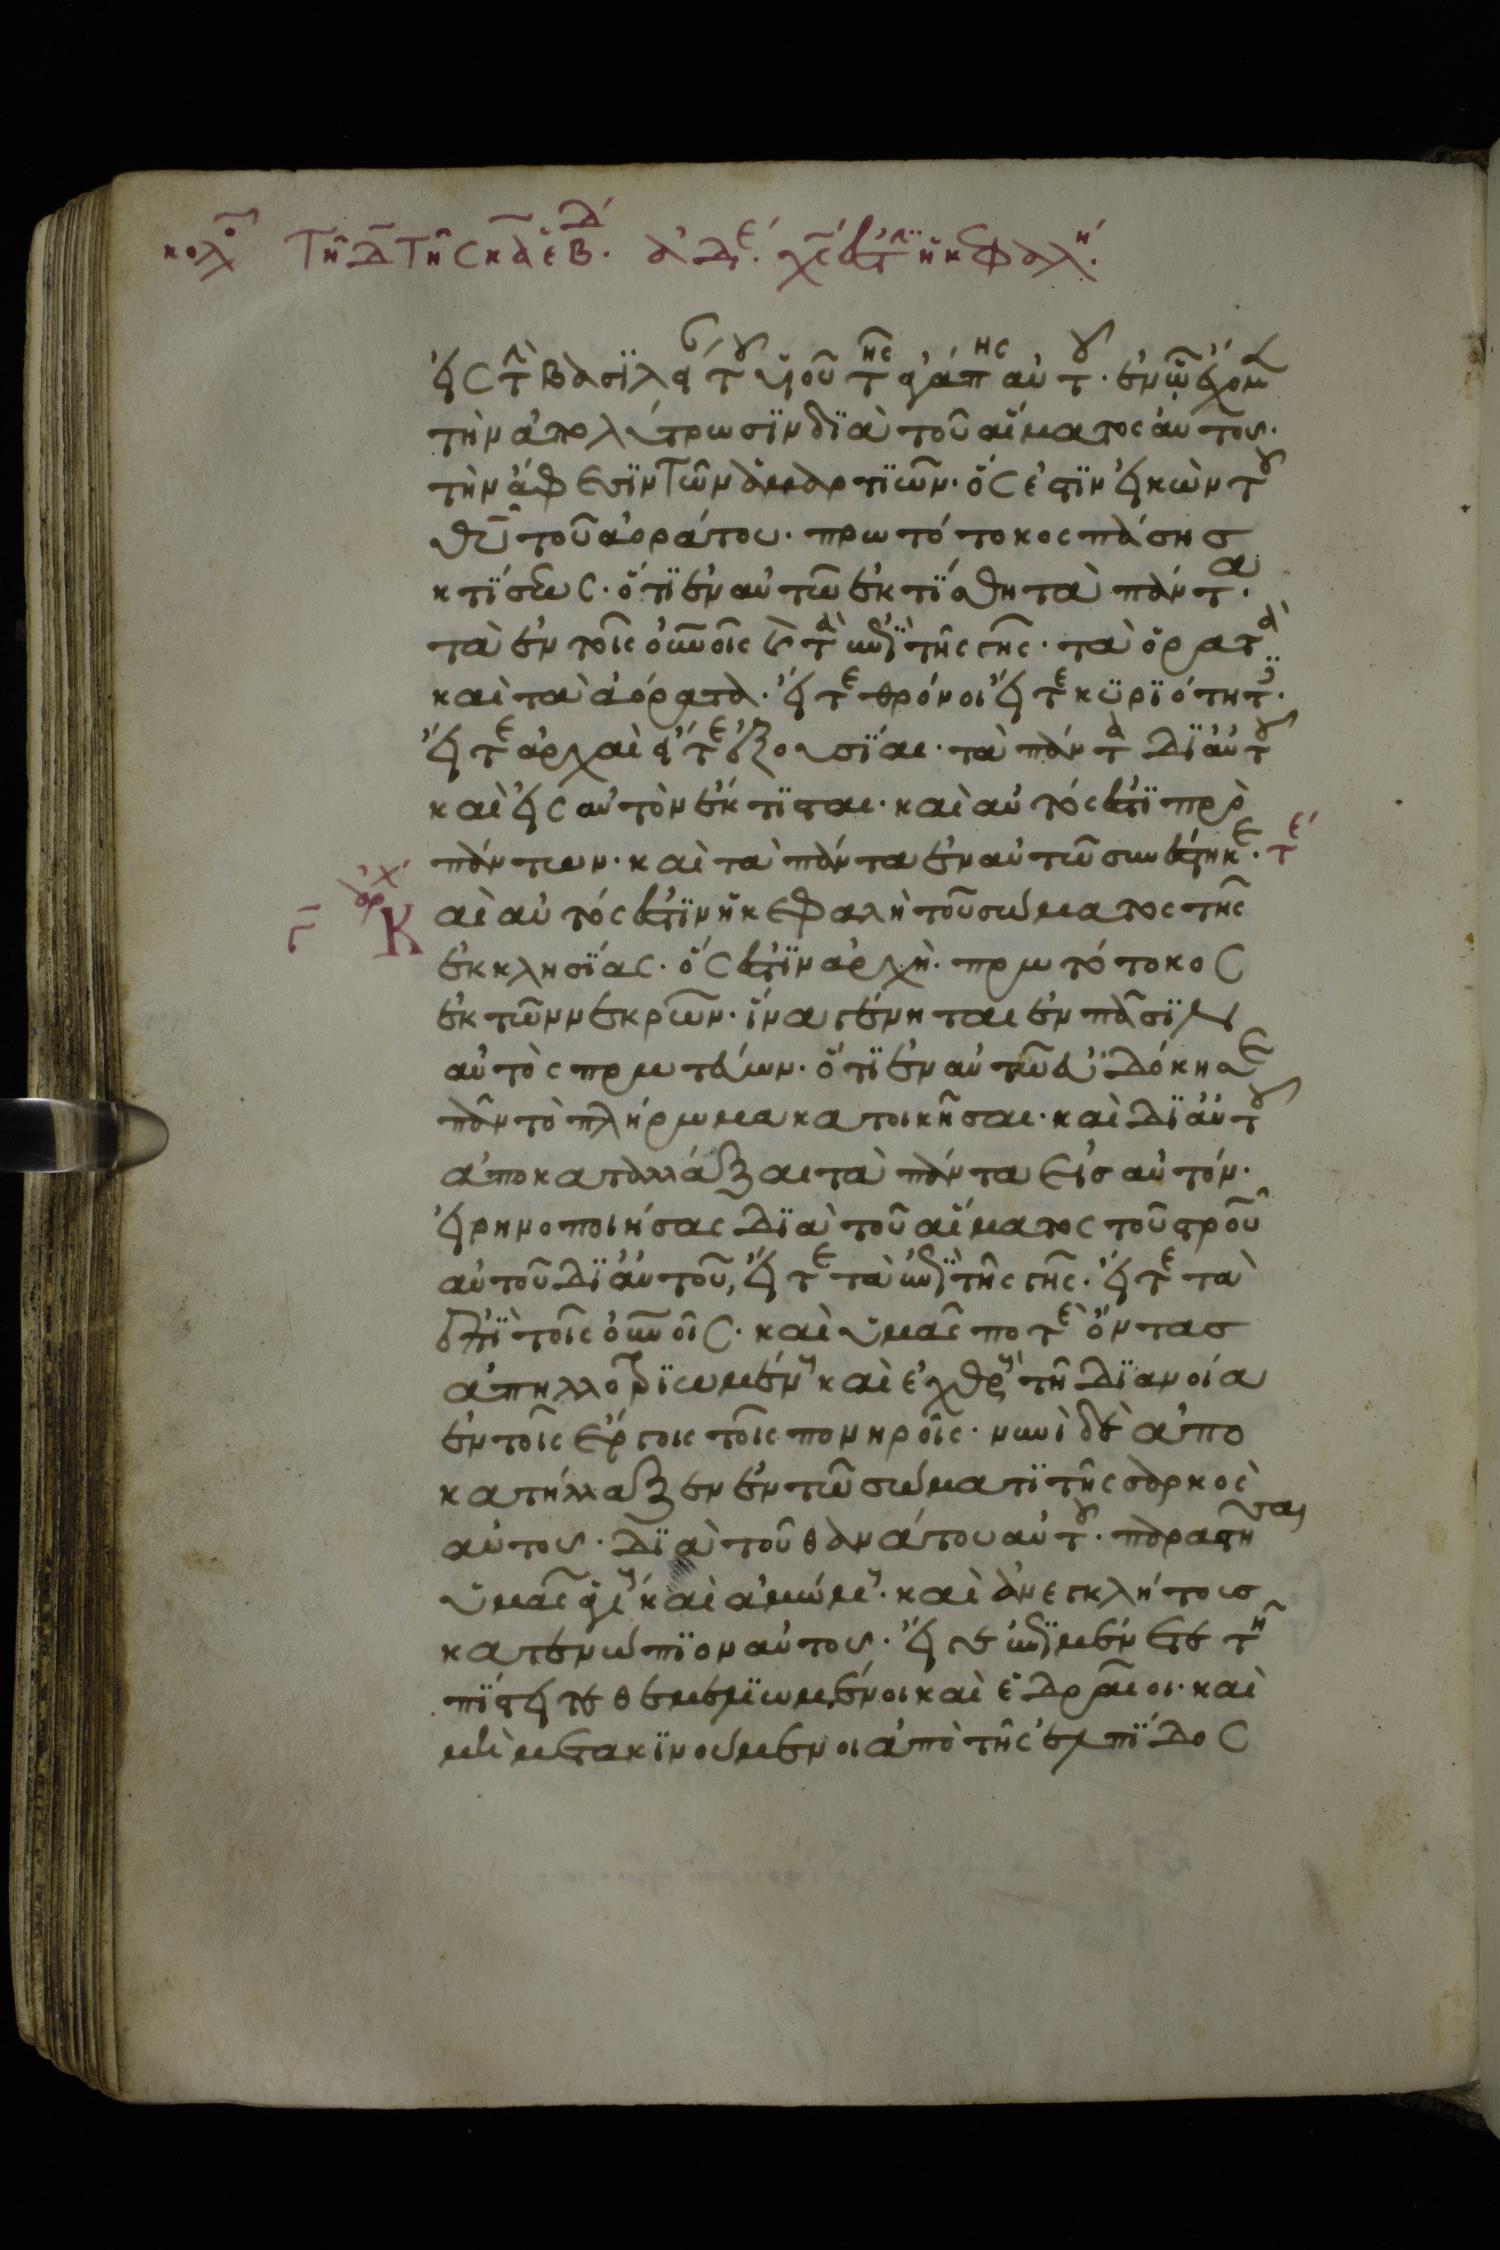 εἰς τὴν βασιλείαν τοῦ υἱοῦ τῆς ἀγάπης αὐτοῦ· ἐν ὧ ἔχομεν
τὴν ἀπολύτρωσϊν δϊὰ τοῦ αἵματος αὐτου·
τὴν ἄφεσϊν τῶν ἁμαρτϊῶν· ὅς ἐστϊν εἰκὼν τοῦ
θῦ τοῦ ἀοράτου· πρωτότοκος πάσης
κτίσεως· ὅτϊ ἐν αὐτῶ ἐκτίσθη τὰ πάντα·
τὰ ἐν τοῖς οὐνοῖς καὶ τὰ ἐπὶ τῆς γῆς· τὰ ὁρατὰ
καὶ τὰ ἀόρατα· εἴτε θρόνοι εἴτε κϋρϊότητες·
εἴτε ἀρχαὶ εἴτε ἐξουσίαι· τὰ πάντα δϊ αὐτοῦ
καὶ εἰς αὐτὸν ἔκτισται· καὶ αὐτός ἐστϊ πρὸ
πάντων· καὶ τὰ πάντα ἐν αὐτῶ συνέστηκε· τε
Καὶ αὐτός ἐστϊν ἡ κεφαλὴ τοῦ σώματος τῆς
ἐκκλησίας· ὅς ἐστϊν ἀρχὴ· πρωτότοκος
ἐκ τῶν νεκρῶν· ἵνα γένηται ἐν πᾶσϊν
αὐτὸς πρωτεύων· ὅτϊ ἐν αὐτῶ εὐδόκησε
πᾶν τὸ πλήρωμα κατοικῆσαι· καὶ δϊ αὐτοῦ
ἀποκαταλλάξαι τὰ πάντα εἰς αὐτόν·
εἰρηνοποιήσας δϊὰ τοῦ αἵματος τοῦ στροῦ
αὐτοῦ δϊ αὐτοῦ, εἴτε τὰ ἐπὶ τῆς γῆς· εἴτε τὰ
ἐπὶ τοῖς οὐνοῖς· καὶ ὑμᾶς ποτὲ ὄντας
ἀπηλλοτρϊωμένους καὶ ἐχθροὺς τῆ δϊανοία
ἐν τοῖς ἔργοις τοῖς πονηροῖς· νυνὶ δὲ ἀπο
κατήλλαξεν ἐν τῶ σώματϊ τῆς σαρκὸς
αὐτου· δϊὰ τοῦ θανάτου αὐτοῦ· παραστῆσαι
ὑμᾶς ἁγίους καὶ ἀμώμους· καὶ ἀνεγκλήτους
κατενώπϊον αὐτου· εἴγε ἐπϊμένετε τῆ
πίστει τεθεμελϊωμένοι καὶ ἑδραῖοι· καὶ
μὴ μετακϊνούμενοι ἀπὸ τῆς ἐλπίδος